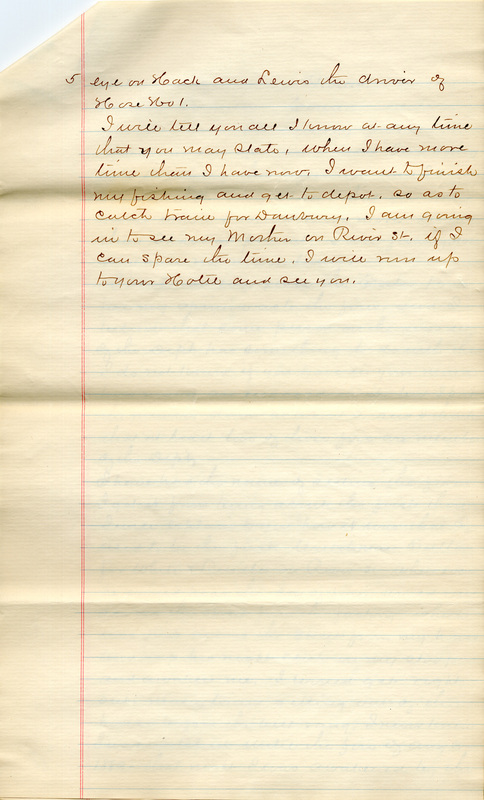 5 eye on Hack and Lewis the driver of
Hose No 1.
I will tell you all I know at any time
that you may state, when I have more
time than I have now. I want to finish
my fishing and get to depot, so as to
catch train for Danbury. I am going
in to see my Mother on River St. if I
can spare the time. I will run up
to your Hotel and see you.